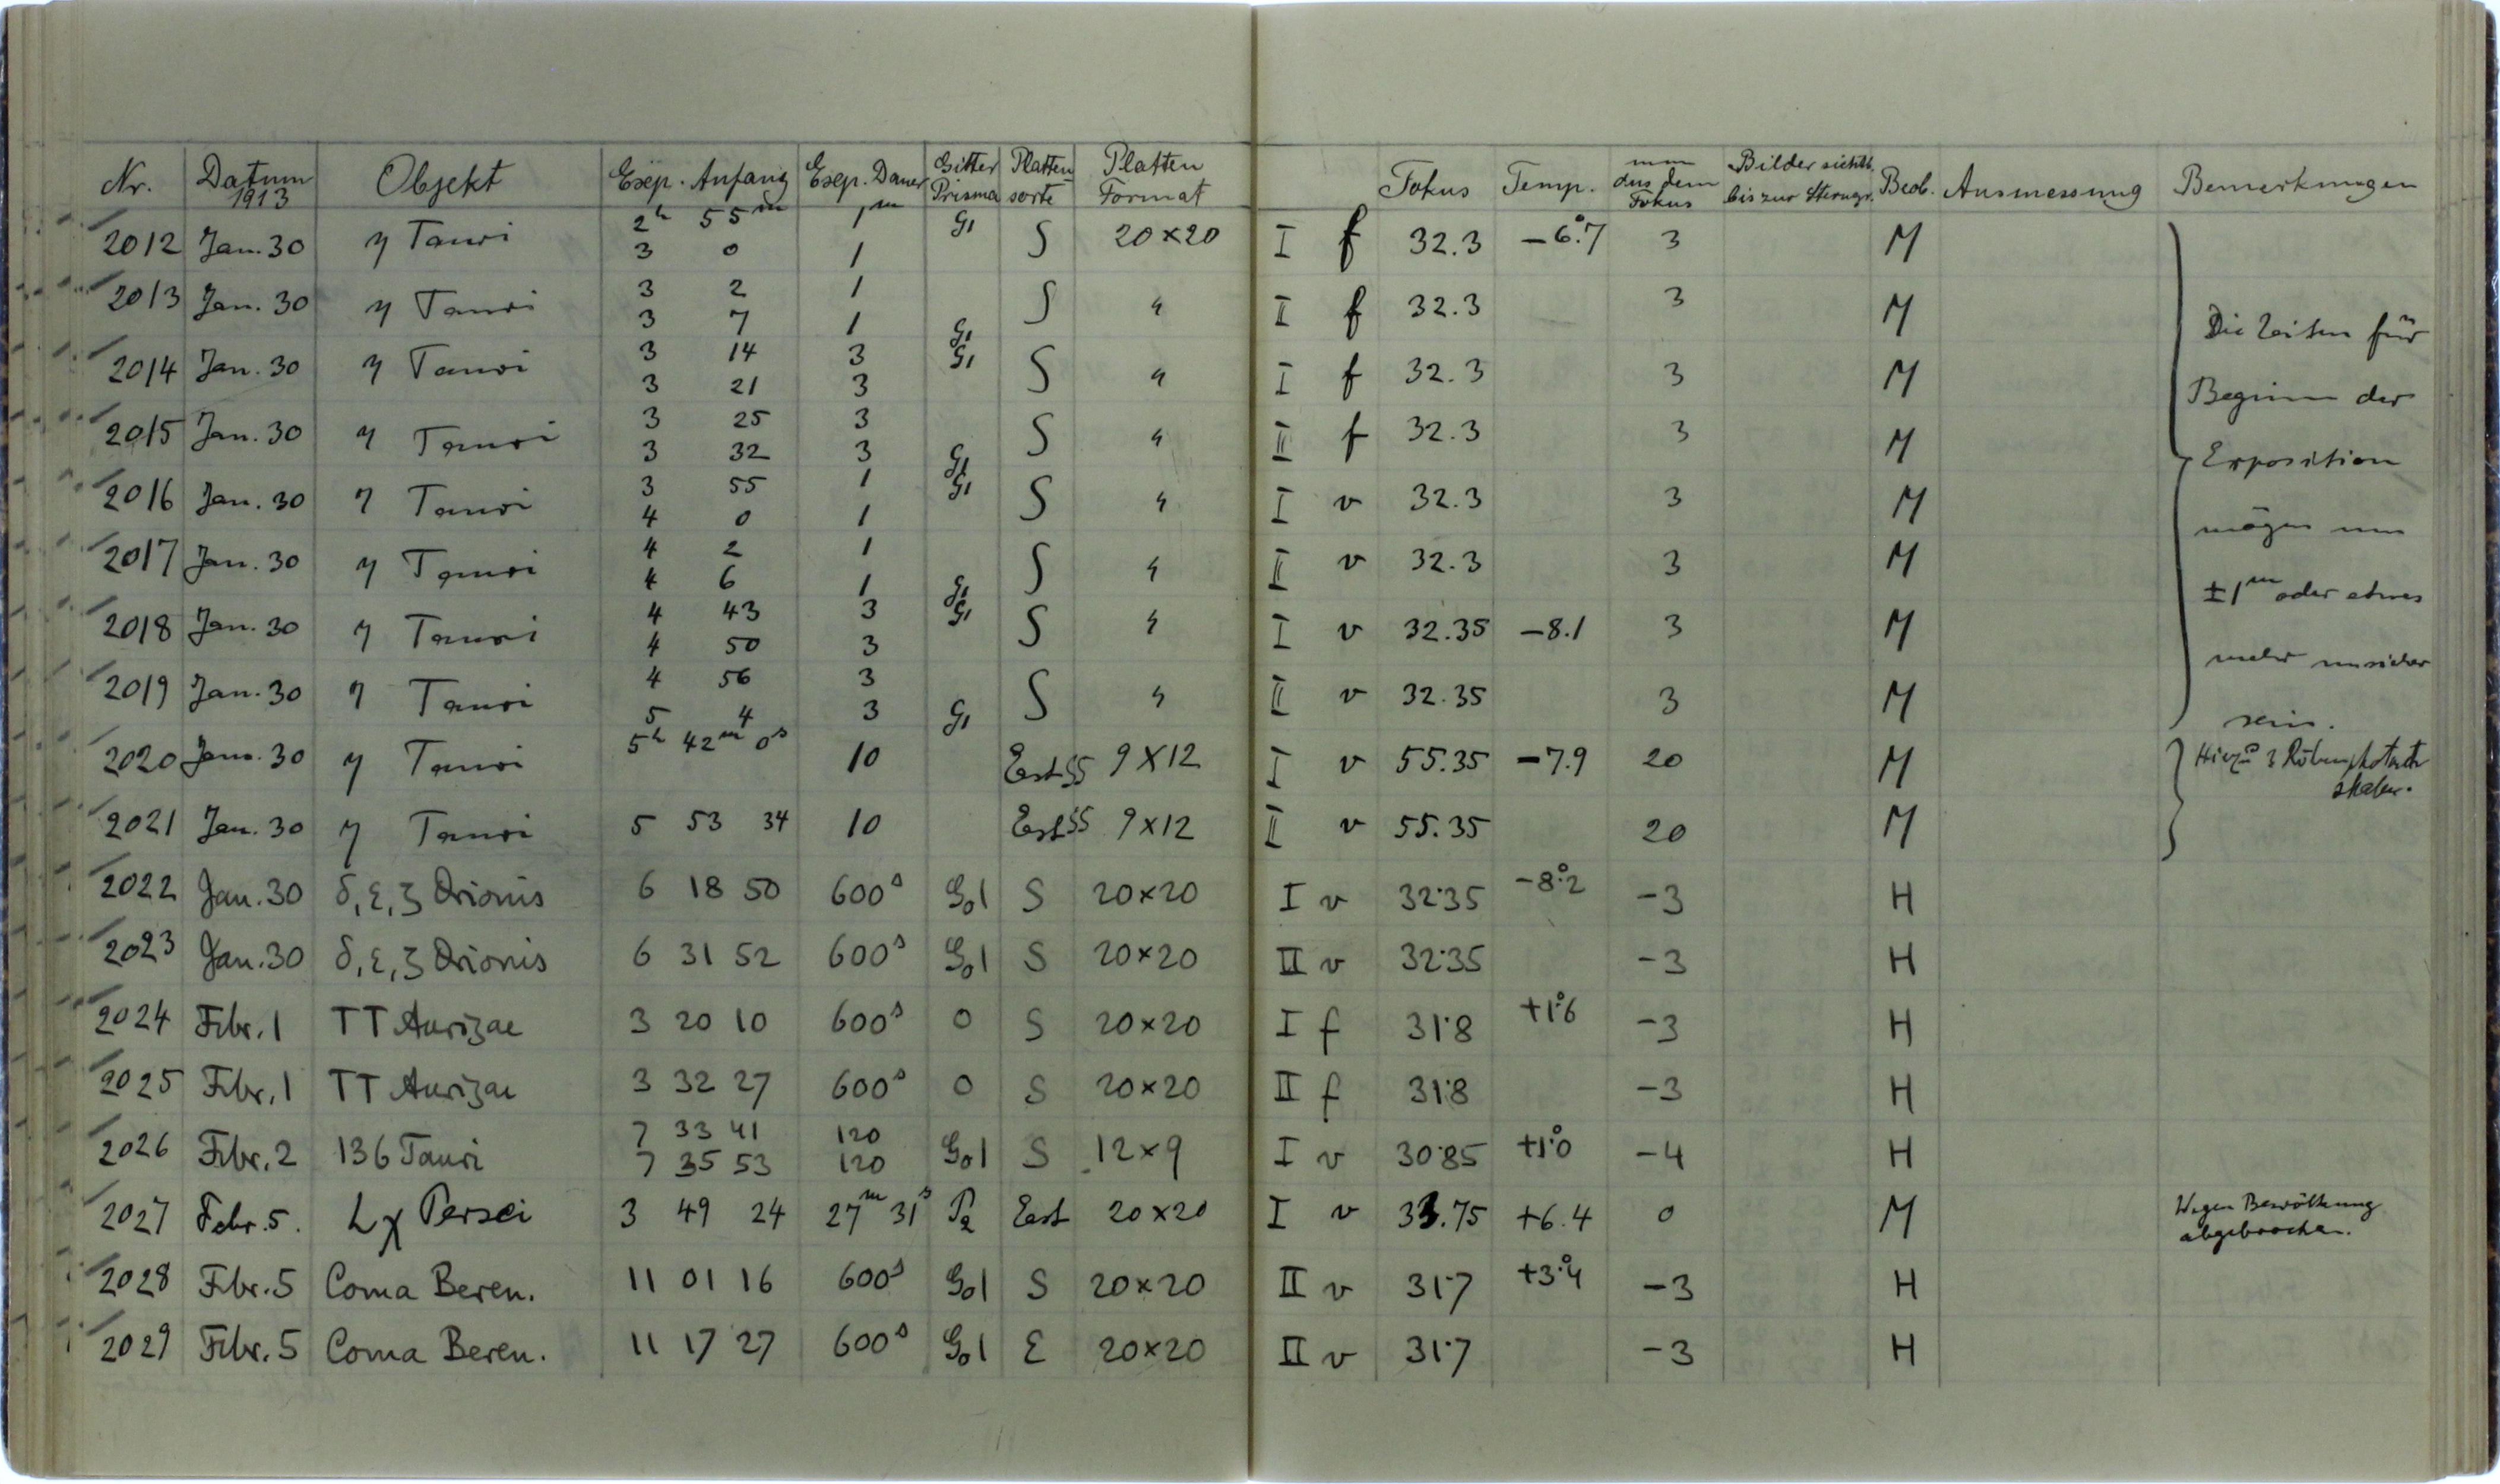 Nr. Datum 1913 Objekt Exp. Anfang Exp. Dauer Gitter Prisma Platten sorte Platten Format Fokus Temp. mm aus dem Fokus Bilder sichtb. bis zur Sterngr. Beob. Ausmessung Bemerkungen
2012 Jan. 30 η Tauri 2h 55m 1m G1 S 20×20 I f 32.3 −6°.7 3 M
3 0 1
2013 Jan. 30 η Tauri 3 2 1 S " II f 32.3 3 M
3 7 1 G1
2014 Jan. 30 η Tauri 3 14 3 G1 S " I f 32.3 3 M
3 21 3
2015 Jan. 30 η Tauri 3 25 3 S " II f 32.3 3 M
3 32 3 G1
2016 Jan. 30 η Tauri 3 55 1 G1 S " I v 32.3 3 M
4 0 1
2017 Jan. 30 η Tauri 4 2 1 S " II v 32.3 3 M
4 6 1 G1
2018 Jan. 30 η Tauri 4 43 3 G1 S " I v 32.35 −8.1 3 M
4 50 3
2019 Jan. 30 η Tauri 4 56 3 S " II v 32.35 3 M
5 4 3 G1
Die Zeiten für
Beginn der
Exposition
mögen um
±1m oder etwas
mehr unsicher
sein.
2020 Jan. 30 η Tauri 5h 42m 0s 10 East SS 9×12 I v 55.35 −7.9 20 M Hierzu 3
2021 Jan. 30 η Tauri 5 53 34 10 East SS 9×12 II v 55.35 20 M
2022 Jan. 30 δ, ε, ζ Orionis 6 18 50 600s G01 S 20×20 I v 32.35 −8°.2 −3 H
2023 Jan. 30 δ, ε, ζ Orionis 6 31 52 600s G01 S 20×20 II v 32.35 −3 H
2024 Febr. 1 TT Aurigae 3 20 10 600s 0 S 20×20 I f 31.8 +1°.6 −3 H
2025 Febr. 1 TT Aurigae 3 32 27 600s 0 S 20×20 II f 31.8 −3 H
2026 Febr. 2 136 Tauri 7 33 41 120 G01 S 12×9 I v 30.85 +1°.0 −4 H
7 35 53 120
2027 Febr. 5. h χ Persei 3 49 24 27m 31s P2 East 20×20 I v 33.75 +6.4 0 M Wegen Bewölkung
abgebrochen.
2028 Febr. 5 Coma Beren. 11 01 16 600s G01 S 20×20 II v 31.7 +3°.4 −3 H
2029 Febr. 5 Coma Beren. 11 17 27 600s G01 E 20×20 II v 31.7 −3 H